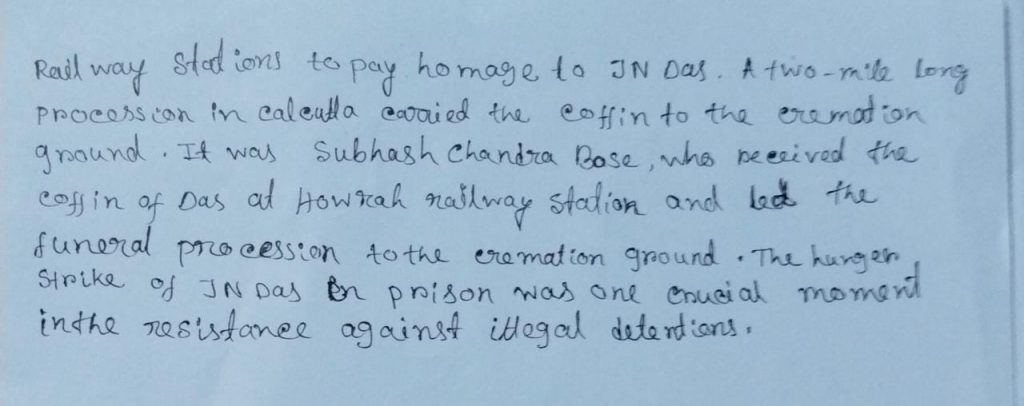 Railway stations to pay homage to JN Das. A two-mile long
procession in calcutta carried the coffin to the cremation
ground. It was Subhash Chandra Bose, who received the
coffin of Das at Howrah railway station and led the
funeral procession to the cremation ground. The hunger
strike of JN Das in prison was one crucial moment
in the resistance against illegal detentions.